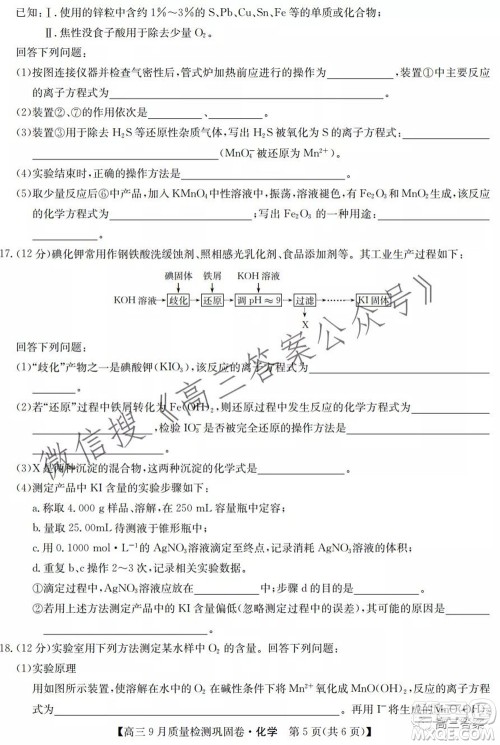 已知:Ⅰ.使用的锌粒中含约1%～3%的S、Pb、Cu、Sn、Fe等的单质或化合物;
Ⅱ.焦性没食子酸用于除去少量O₂。
回答下列问题:
(1)按图连接仪器并检查气密性后,管式炉加热前应进行的操作为____________,装置①中主要反应
的离子方程式为____________。
(2)装置②、⑦的作用依次是____________、____________。
(3)装置③用于除去H₂S等还原性杂质气体,写出H₂S被氧化为S的离子方程式:____________
____________(MnO₄⁻被还原为Mn²⁺)。
(4)实验结束时,正确的操作方法是____________。
(5)取少量反应后⑥中产品,加入KMnO₄中性溶液中,振荡,溶液变色,有Fe₂O₃和MnO₂生成,该反应的
化学方程式为____________;写出Fe₂O₃的一种用途:____________
____________。
17.(12分)碘化钾常用作钢铁酸洗缓蚀剂、照相感光乳化剂、食品添加剂等。其工业生产过程如下:
碘固体 铁屑 KOH溶液
KOH溶液→歧化→还原→调pH≈9→过滤→……→KI固体
X
回答下列问题:
(1)“歧化”产物之一是碘酸钾(KIO₃),该反应的离子方程式为____________
____________。
(2)若“还原”过程中铁屑转化为Fe(OH)₂,则还原过程中发生反应的化学方程式为____________
____________,检验IO₃⁻是否被完全还原的操作为____________
____________。
(3)X是两种沉淀的混合物,这两种沉淀的化学式是____________。
(4)测定产品中KI含量的实验步骤如下:
a.称取4.000 g样品,溶解,在250 mL容量瓶中定容;
b.量取25.00mL待测液于锥形瓶中;
c.用0.1000 mol·L⁻¹的AgNO₃溶液滴定至终点,记录消耗AgNO₃溶液的体积;
d.重复b、c操作2～3次,记录相关实验数据。
①滴定过程中,AgNO₃溶液应放在____________中;步骤d的目的是____________。
②若用上述方法测定产品中的KI含量偏低(忽略测定过程中的误差),其可能的原因是____________
____________。
18.(12分)实验室用下列方法测定某水样中O₂的含量。回答下列问题:
(1)实验原理
用如图所示装置,使溶解在水中的O₂在碱性条件下将Mn²⁺氧化成MnO(OH)₂,反应的离子方程式为
____________。再用I⁻将MnO(OH)₂
【高三9月质量检测巩固卷·化学 第5页(共6页)】
微信搜《高三答案公众号》
高三答案